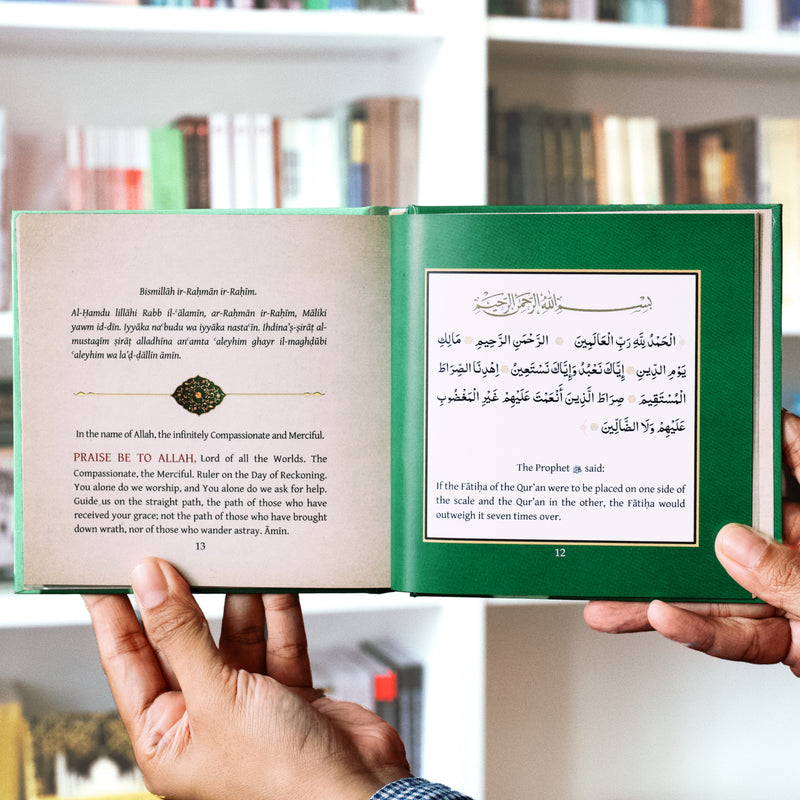 بِسْمِ اللهِ الرَّحْمٰنِ الرَّحِيمِ
الْحَمْدُ لِلَّهِ رَبِّ الْعَالَمِينَ ۞ الرَّحْمٰنِ الرَّحِيمِ ۞ مَالِكِ
يَوْمِ الدِّينِ ۞ إِيَّاكَ نَعْبُدُ وَإِيَّاكَ نَسْتَعِينُ ۞ اِهْدِنَا الصِّرَاطَ
الْمُسْتَقِيمَ ۞ صِرَاطَ الَّذِينَ أَنْعَمْتَ عَلَيْهِمْ غَيْرِ الْمَغْضُوبِ
عَلَيْهِمْ وَلَا الضَّالِّينَ ۞
The Prophet ﷺ said:
If the Fātiḥa of the Qur’an were to be placed on one side of
the scale and the Qur’an in the other, the Fātiḥa would
outweigh it seven times over.
12
Bismillāh ir-Raḥmān ir-Raḥīm.
Al-Ḥamdu lillāhi Rabb il-ʿālamīn, ar-Raḥmān ir-Raḥīm, Māliki
yawm id-dīn. Iyyāka naʿbudu wa iyyāka nastaʿīn. Ihdina’ṣ-ṣirāṭ al-
mustaqīm ṣirāṭ alladhīna anʿamta ʿaleyhim ghayr il-maghḍūbi
ʿaleyhim wa la’ḍ-ḍāllīn āmīn.
In the name of Allah, the infinitely Compassionate and Merciful.
PRAISE BE TO ALLAH, Lord of all the Worlds. The
Compassionate, the Merciful. Ruler on the Day of Reckoning.
You alone do we worship, and You alone do we ask for help.
Guide us on the straight path, the path of those who have
received your grace; not the path of those who have brought
down wrath, nor of those who wander astray. Āmīn.
13